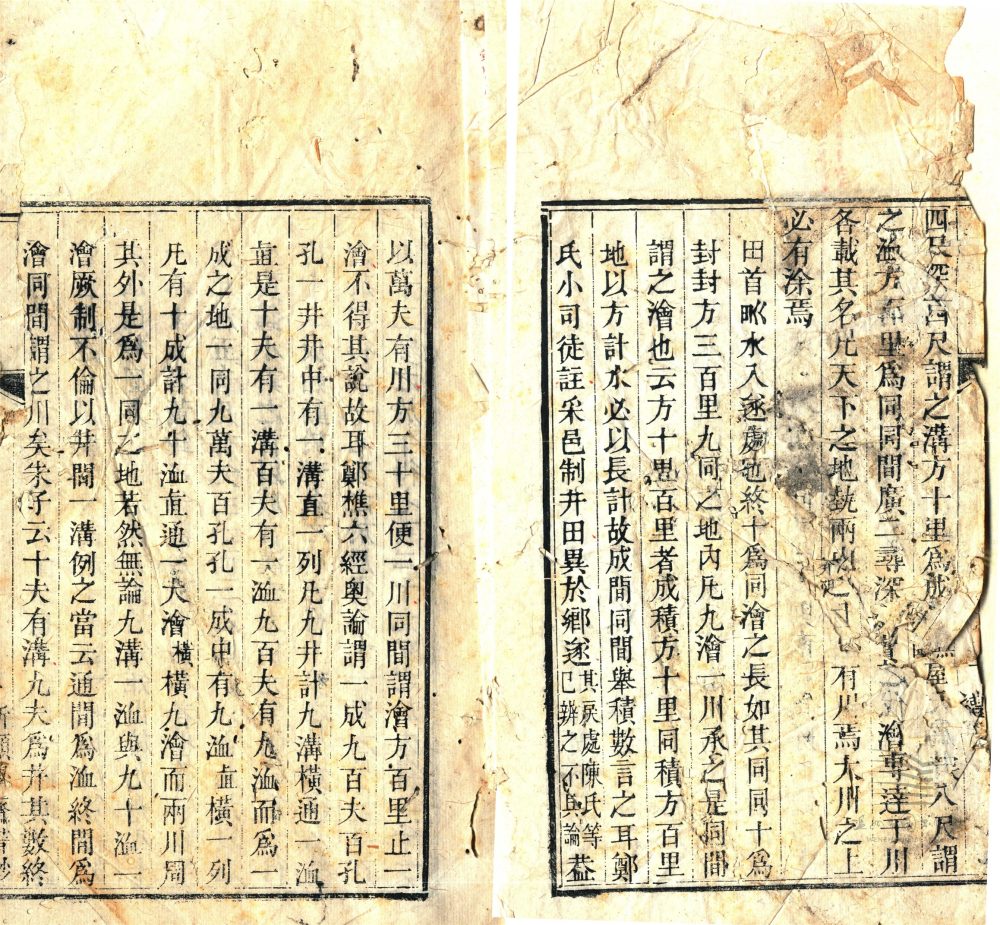 四尺深四尺謂之溝方十里爲成　　　　　八尺謂
之洫方百里爲同同間廣二尋深　　　澮專達于川
各載其名凡天下之地埶兩山之　　有川焉大川之上
必有涂焉
田首甽水入遂處也終十爲同澮之長如其同同十爲
封封方三百里九同之地內凡九澮一川承之是同間
謂之澮也云方十里百里者成積方十里同積方百里
地以方計水必以長計故成間同間舉積數言之耳鄭
氏小司徒註采邑制井田異於鄉遂其戾處陳氏等已辨之不具論葢
以萬夫有川方三十里便一川同間謂澮方百里止一
澮不得其說故耳鄭樵六經奧論謂一成九百夫百孔
孔一井井中有一溝直一列凡九井計九溝橫通一洫
直是十夫有一溝百夫有一洫九百夫有九洫而爲一
成之地一同九萬夫百孔孔一成中有九洫直橫一列
凡有十成計九十洫直通一大澮橫橫九澮而兩川周
其外是爲一同之地若然無論九溝一洫與九十洫一
澮厥制不倫以井閒一溝例之當云通間爲洫終間爲
澮同間謂之川矣朱子云十夫有溝九夫爲井其數終